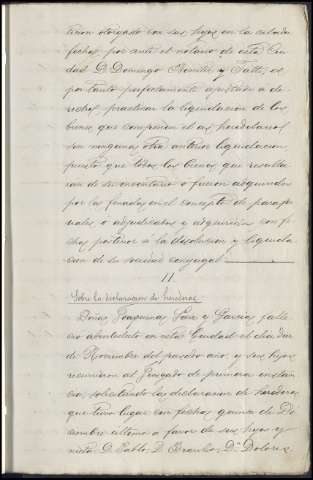 tieron otorgado con sus hijos en la citada
fecha por ante el notario de esta Ciu
dad D. Domingo Benitez y Fatt, es
por tanto perfectamente ajustado a de-
recho, practicar la liquidacion de los
bienes que componen el as hereditario
sin ninguna otra anterior liquidacion
puesto que todos los bienes que resulta
ran de su inventario o fueron adquiridos
por la finada en el concepto de parafer
nales o adjudicados y adquirida con fe
cha posterior a la disolucion y liquida
cion de su sociedad conyugal.
II.
Sobre la declaracion de herederos
Doña Saez y Garcia falle
cio abintestato en esta Ciudad el dia dos
de Noviembre del pasado año, y sus hijos
recurrieron al Juzgado de primera instan
cia solicitando la declaracion de herederos
que tuvo lugar con fecha quince de Di
ciembre ultimo a favor de sus hijos y
nieta D. Pablo, D. Braulio, Dª Dolores